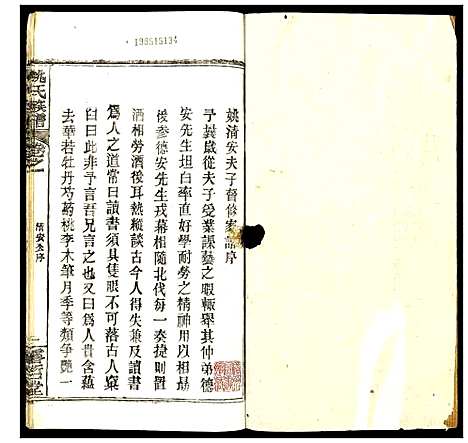 198515134
姚清安夫子督修家譜序
予曩歲從夫子受業課藝之暇輒舉其仲弟德
安先生坦白率直好學耐勞之精神用以相勗
後參德安先生戎幕相隨北伐每一奏捷則置
酒相勞酒後耳熱縱談古今人得失及讀書
爲人之道常曰讀書須具隻眼不可落古人窠
臼曰此非予言吾兄言之也又曰爲人貴含蘊
去華若牡丹芍藥桃李木筆月季等類爭艷一
姚氏族譜
卷之一
清安公序